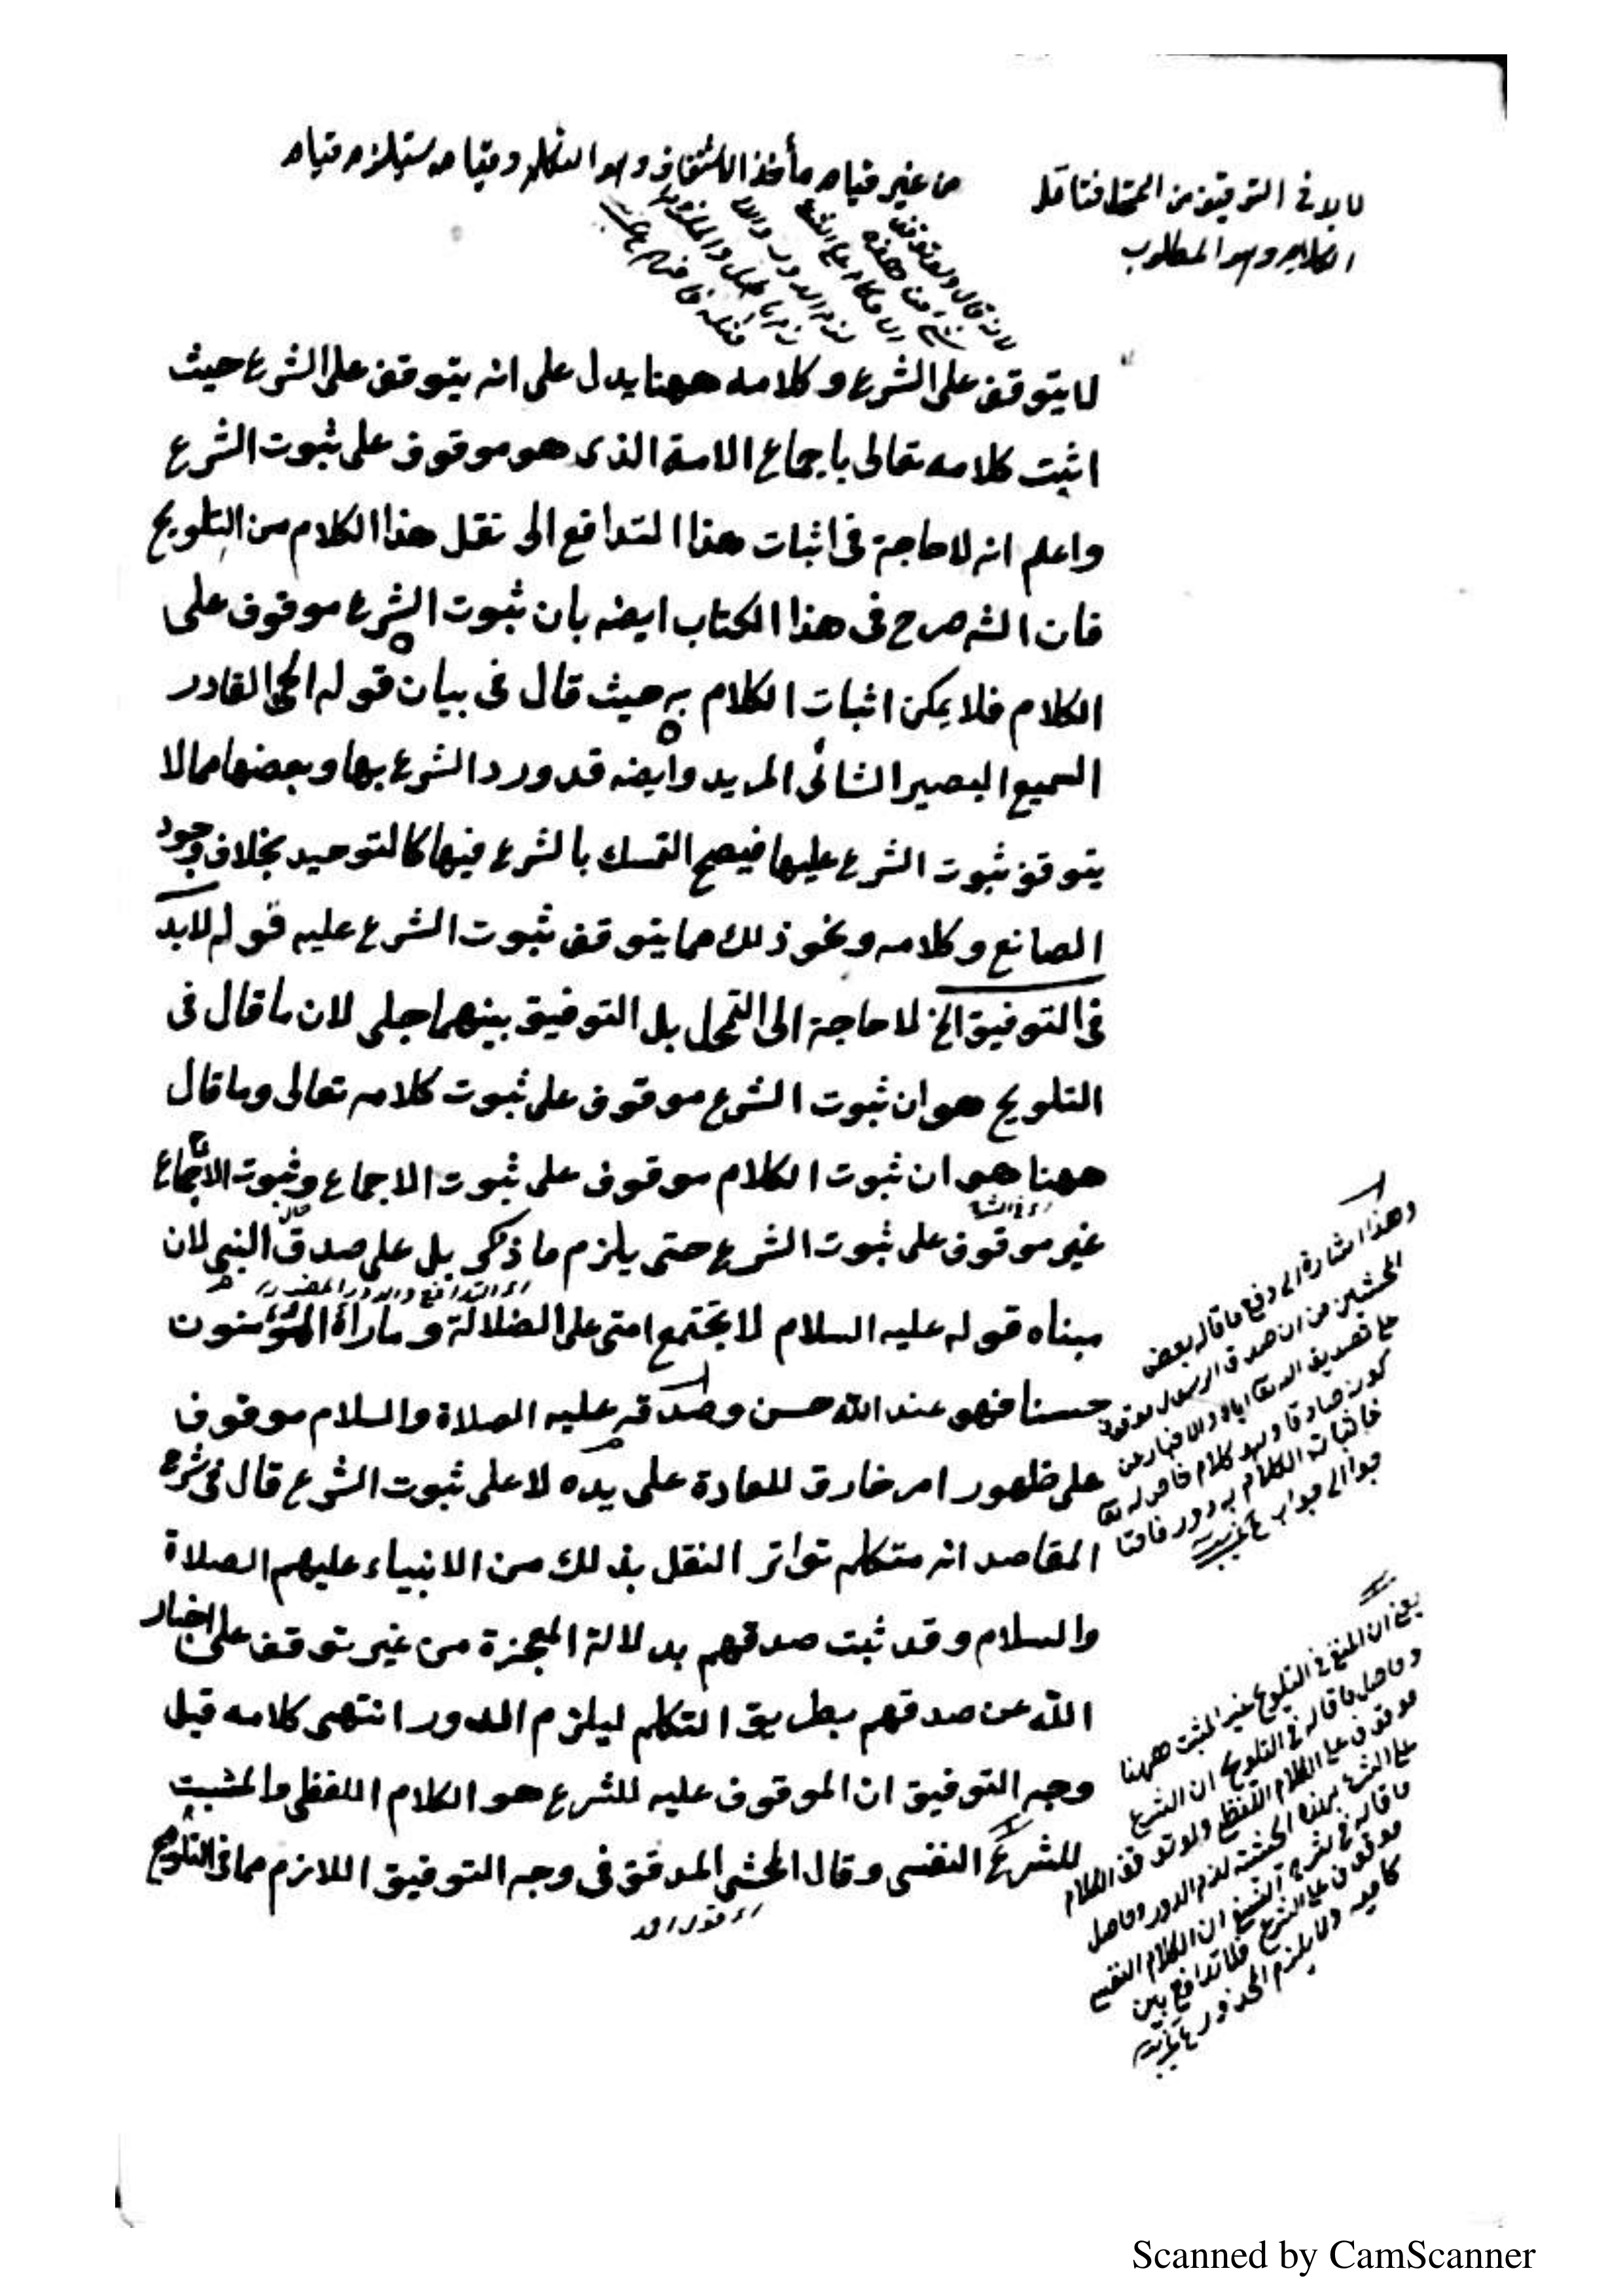 لا بد في التوفيق من التمحل فتأمل
الكلام وهو المطلوب
من غير قيام مأخذ الاشتقاق وهو التكلم وقيامه يستلزم قيام
لا يتوقف على الشرع وكلامه ههنا يدل على انه يتوقف على الشرع حيث
اثبت كلامه تعالى باجماع الامة الذى هو موقوف على ثبوت الشرع
واعلم انه لا حاجة فى اثبات هذا التدافع الى نقل هذا الكلام من التلويح
فان الشه صرح فى هذا الكتاب ايضه بان ثبوت الشرع موقوف على
الكلام فلا يمكن اثبات الكلام به حيث قال فى بيان قوله الحى القادر
السميع البصير الشائى المريد وايضه قد ورد الشرع بها وبعضها مما لا
يتوقف ثبوت الشرع عليها فيصح التمسك بالشرع فيها كالتوحيد بخلاف وجود
الصانع وكلامه ونحو ذلك مما يتوقف ثبوت الشرع عليه قوله لابد
فى التوفيق الخ لا حاجة الى التمحل بل التوفيق بينهما جلى لان ما قال فى
التلويح هو ان ثبوت الشرع موقوف على ثبوت كلامه تعالى وما قال
ههنا هو ان ثبوت الكلام موقوف على ثبوت الاجماع وثبوت الاجماع
غير موقوف على ثبوت الشرع حتى يلزم ما ذكر بل على صدق النبى لان
اى التدافع والدور
مبناه قوله عليه السلام لا يجتمع امتى على الضلالة وما رأه المؤمنون
حسنا فهو عند الله حسن وصدقه عليه الصلاة والسلام موقوف
على ظهور امر خارق للعادة على يده لا على ثبوت الشرع قال فى شرح
المقاصد انه متكلم تواتر النقل بذلك من الانبياء عليهم الصلاة
والسلام وقد ثبت صدقهم بدلالة المعجزة من غير توقف على اخبار
الله عن صدقهم بطريق التكلم ليلزم الدور انتهى كلامه قيل
وجه التوفيق ان الموقوف عليه للشرع هو الكلام اللفظى والمثبت
للشرع النفسى وقال المحشى المدقق فى وجه التوفيق اللازم مما فى التلويح
وهذا اشارة الى دفع ما قاله بعض
المحشين من ان صدق الرسول موقوف
على تصديق الله تعا اياه والاخبار عن
كونه صادقا وهو كلام خاص له تعا
فاثبات الكلام به دور
يعنى ان المنفى فى التلويح غير المثبت ههنا
وحاصل ما قاله فى التلويح ان الشرع
موقوف على الكلام اللفظى ولو توقف الكلام
على الشرع بهذه الحيثية لزم الدور وحاصل
ما قاله فى شرح ان الكلام النفسى
موقوف على الشرع فلا تدافع بين
كلاميه ولا يلزم المحذور
Scanned by CamScanner